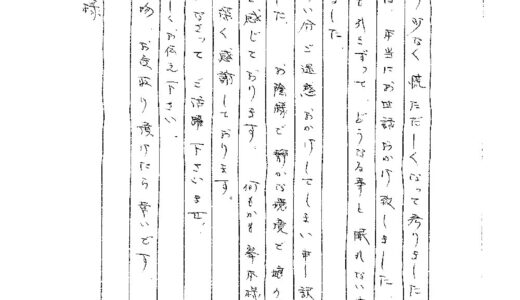 り少なく 慌ただしくなって参りました
は、本当にお世話おかけ致しました。
を引きずって、どうなる事と眠れない
した。
い分ご迷惑おかけしてしまい申し訳
した。お陰様で静かな環境で
と感じております。何もかも 本様
深く感謝しております。
なさって ご活躍下さいませ。
しくお伝え下さい。
物、お受取り頂けたら幸いです
様